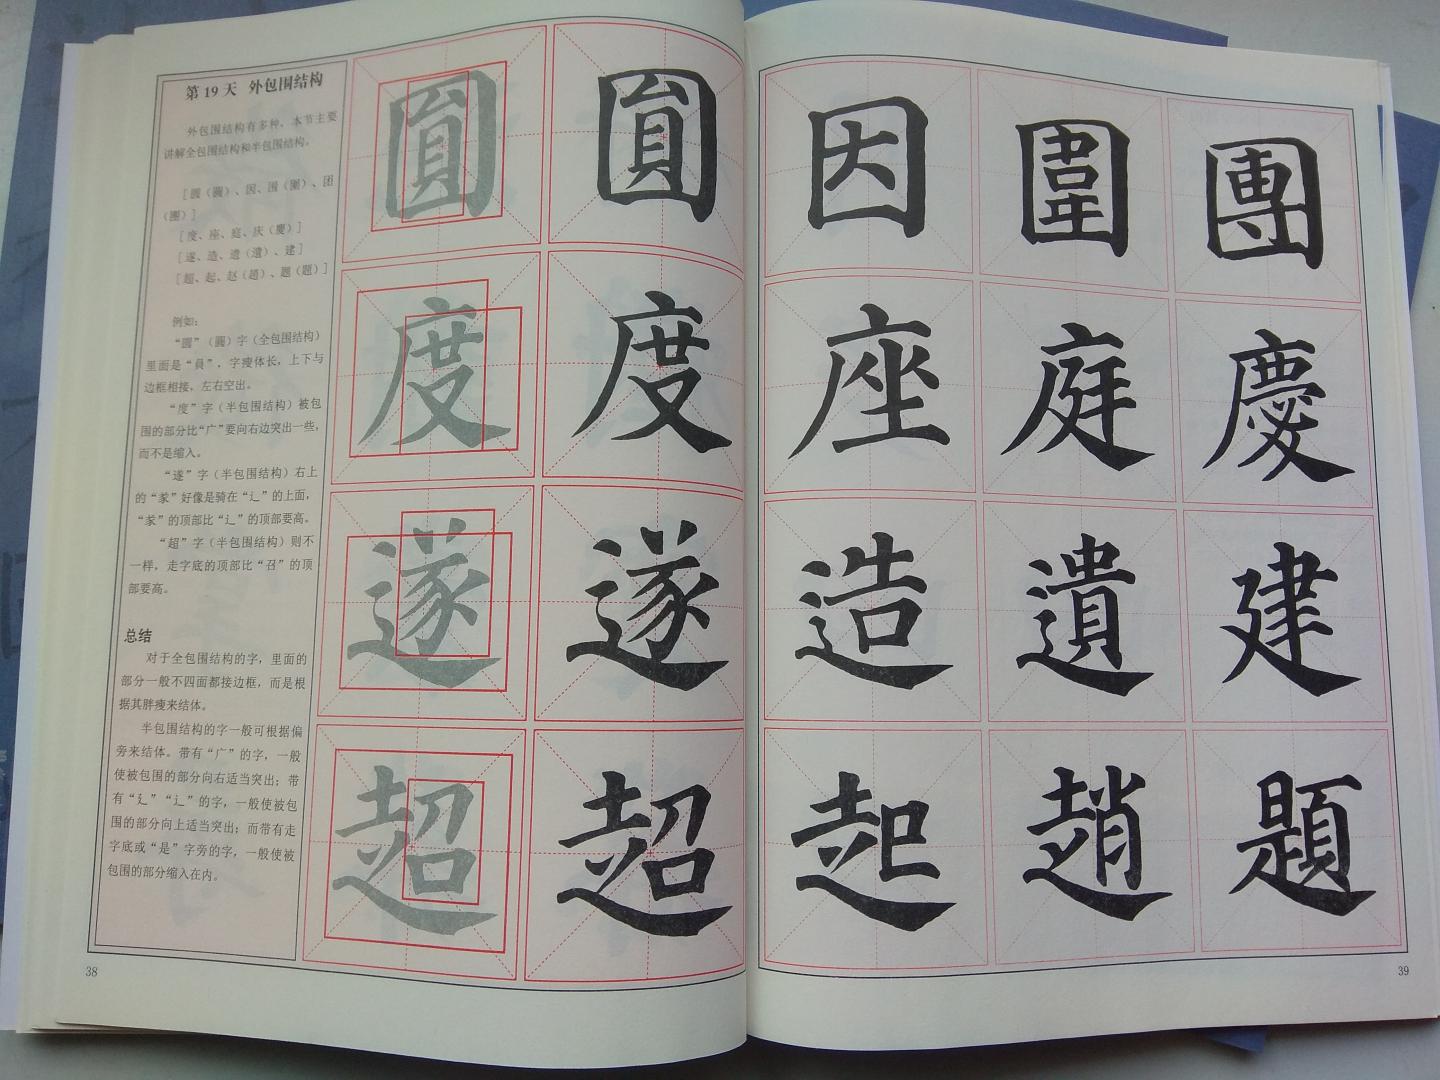 第 19 天 外包围结构
外包围结构有多种，本节主要
讲解全包围结构和半包围结构。
［圆（圓）、因、围（圍）、团
（團）］
［度、座、庭、庆（慶）］
［遂、造、遗（遺）、建］
［超、起、赵（趙）、题（題）］
例如：
“圆”（圓）字（全包围结构）
里面是“員”，字瘦体长，上下与
边框相接，左右空出。
“度”字（半包围结构）被包
围的部分比“广”要向右边突出一些，
而不是缩入。
“遂”字（半包围结构）右上
的“㒸”好像是骑在“辶”的上面，
“㒸”的顶部比“辶”的顶部要高。
“超”字（半包围结构）则不
一样，走字底的顶部比“召”的顶
部要高。
总结
对于全包围结构的字，里面的
部分一般不四面都接边框，而是根
据其胖瘦来结体。
半包围结构的字一般可根据偏
旁来结体。带有“广”的字，一般
使被包围的部分向右适当突出；带
有“廴”“辶”的字，一般使被包
围的部分向上适当突出；而带有走
字底或“是”字旁的字，一般使被
包围的部分缩入在内。
圓 圓 因 圍 團
度 度 座 庭 慶
遂 遂 造 遺 建
超 超 起 趙 題
38
39